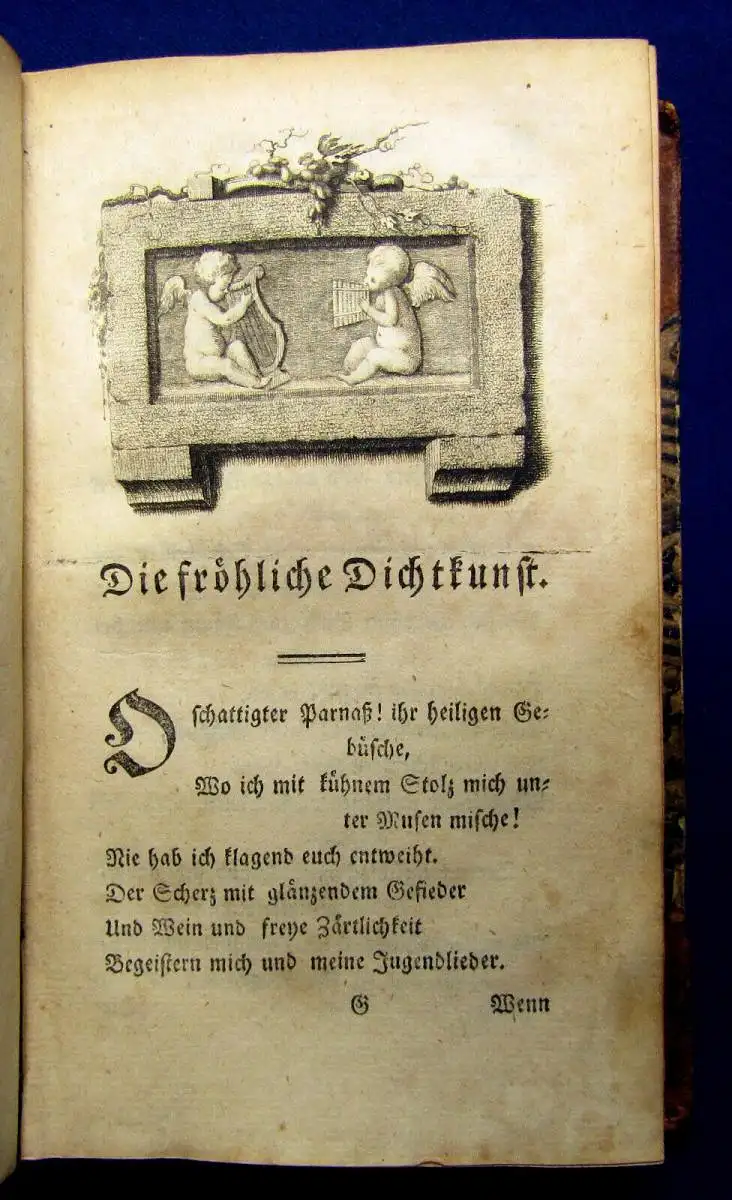 Die fröhliche Dichtkunst.
O ſchattigter Parnaß! ihr heiligen Ge-
büſche,
Wo ich mit kühnem Stolz mich un-
ter Muſen miſche!
Nie hab ich klagend euch entweiht.
Der Scherz mit glänzendem Gefieder
Und Wein und freye Zärtlichkeit
Begeiſtern mich und meine Jugendlieder.
G Wenn